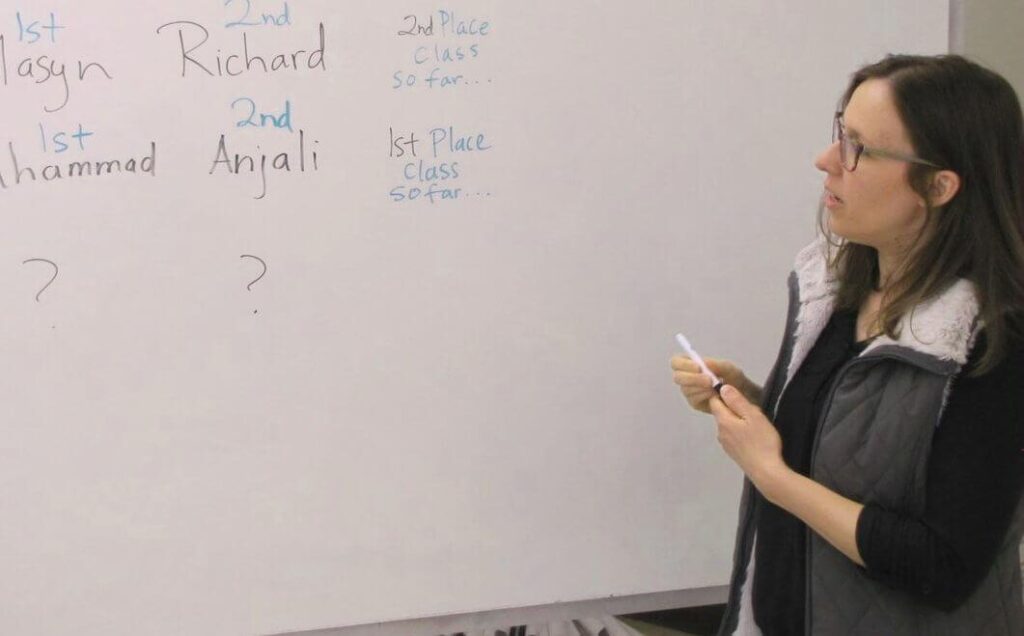 1st 2nd
asyn Richard
2nd Place
Class
so far...
1st 2nd
hammad Anjali
1st Place
Class
so far...
? ?